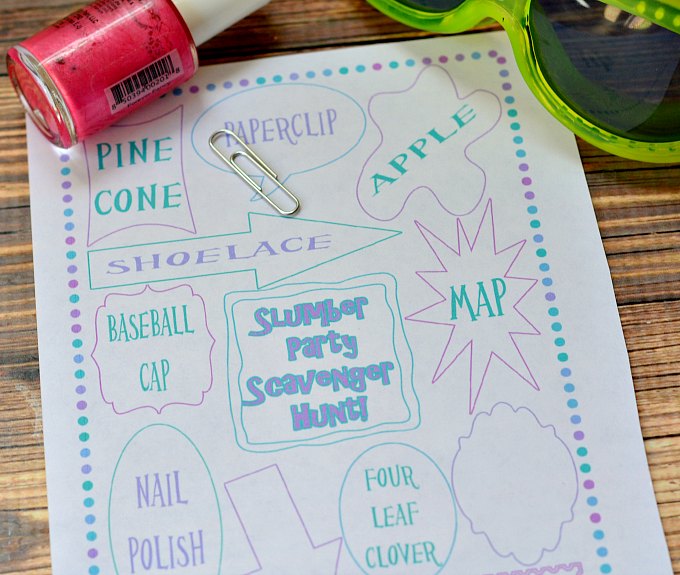 PINE
CONE
PAPERCLIP
APPLE
SHOELACE
BASEBALL
CAP
SLUMBER
PARTY
SCAVENGER
HUNT!
MAP
NAIL
POLISH
FOUR
LEAF
CLOVER